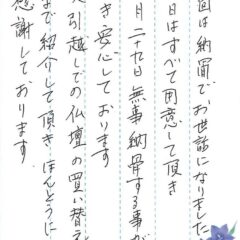 回は納骨で、お世話になりました
日はすべて用意して頂き
月二十九日無事納骨する事が
き安心しております
引越しでの仏壇の買い替え
で紹介して頂きほんとうに
感謝しております。